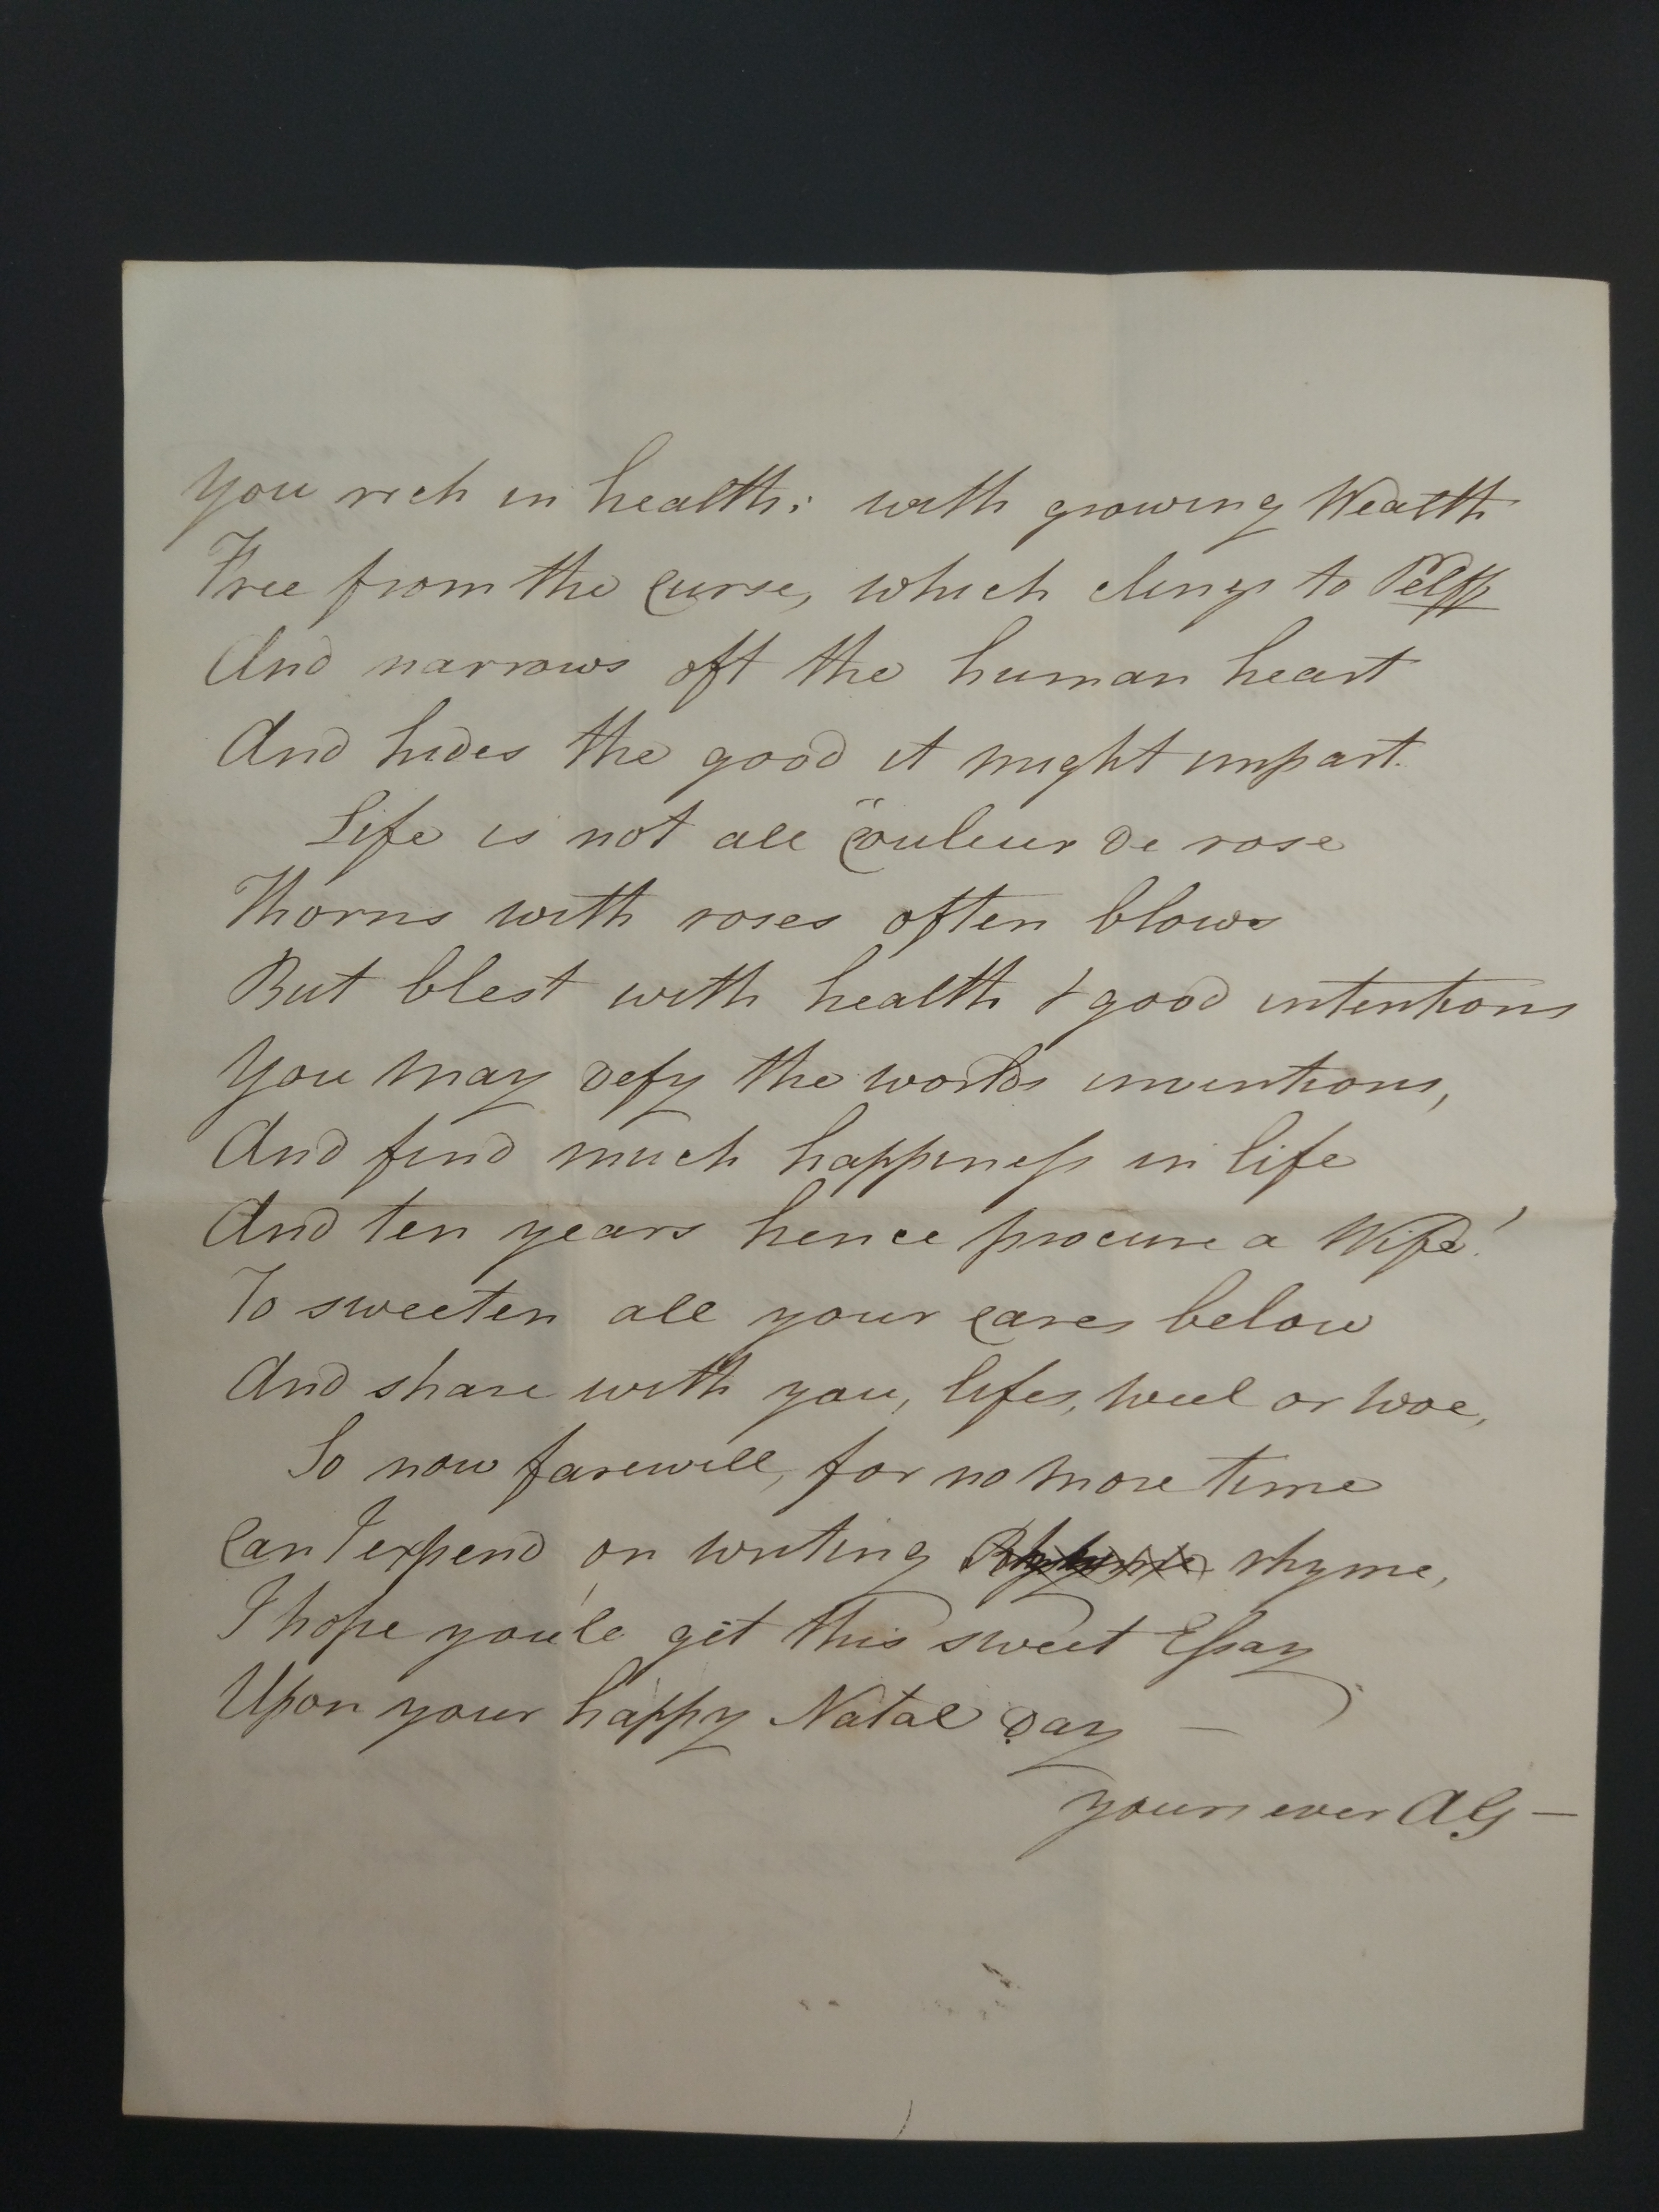 You rich in health; with growing Wealth
Free from the Curse, which clings to Pelff
And narrows oft the human heart
And hides the good it might impart.
Life is not all "Couleur de rose
Thorns with roses often blows
But blest with health & good intentions
You may defy the worlds inventions,
And find much happiness in life
And ten years hence procure a Wife!
To sweeten all your cares below
And share with you, lifes, weel or woe,
So now farewell, for no more time
Can I expend on writing rhyme,
I hope you'le get this sweet Essay
Upon your happy Natal Day —
yours ever AG —